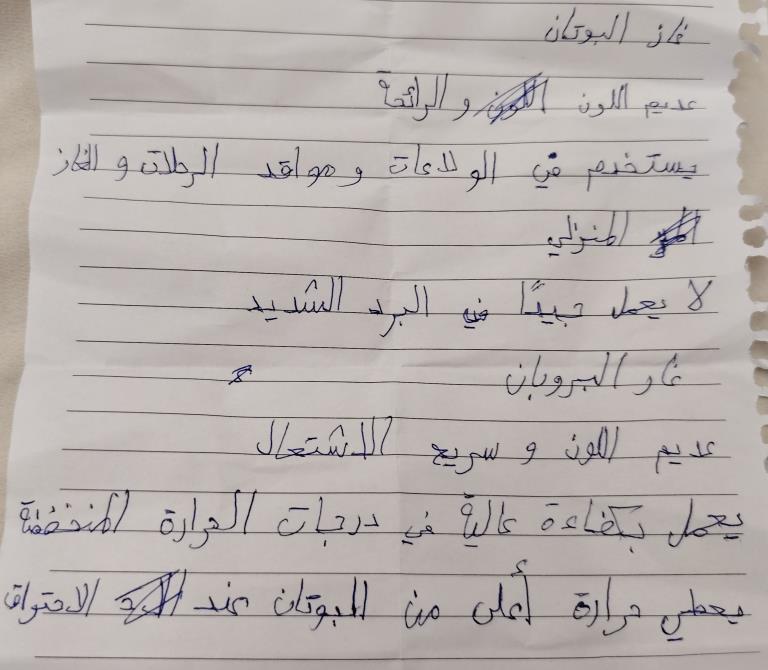 غاز البوتان
عديم اللون و الرائحة
يستخدم في الولاعات و مواقد الرحلات و الغاز
المنزلي
لا يعمل جيدًا في البرد الشديد
غاز البروبان
عديم اللون و سريع الاشتعال
يعمل بكفاءة عالية في درجات الحرارة المنخفضة
يعطي حرارة أعلى من البوتان عند الاحتراق